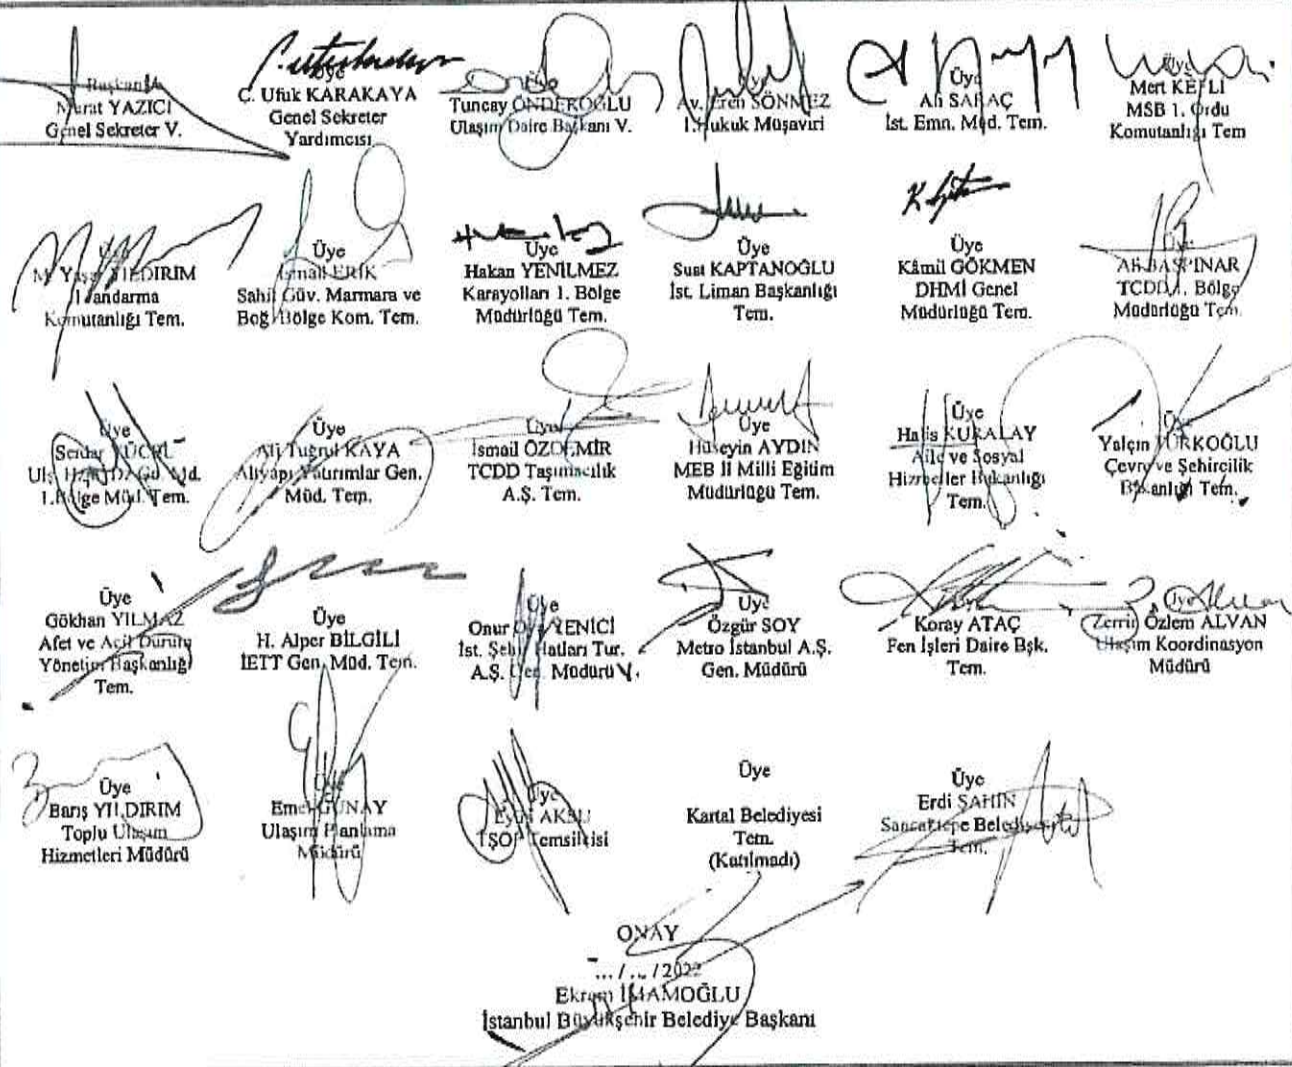 Başkan
Murat YAZICI
Genel Sekreter V.
Üye
C. Ufuk KARAKAYA
Genel Sekreter
Yardımcısı
Üye
Tuncay ÖNDEROĞLU
Ulaşım Daire Başkanı V.
Üye
Av. Eren SÖNMEZ
1.Hukuk Müşaviri
Üye
Ali SARAÇ
İst. Emn. Müd. Tem.
Üye
Mert KEFLİ
MSB 1. Ordu
Komutanlığı Tem
Üye
M. Yaşar YILDIRIM
Jandarma
Komutanlığı Tem.
Üye
İsmail ERİK
Sahil Güv. Marmara ve
Boğ. Bölge Kom. Tem.
Üye
Hakan YENİLMEZ
Karayolları 1. Bölge
Müdürlüğü Tem.
Üye
Suat KAPTANOĞLU
İst. Liman Başkanlığı
Tem.
Üye
Kâmil GÖKMEN
DHMİ Genel
Müdürlüğü Tem.
Üye
Ali BAŞPINAR
TCDD 1. Bölge
Müdürlüğü Tem.
Üye
Serdar YÜCEL
1.Bölge Müd. Tem.
Üye
Ali Tuğrul KAYA
Altyapı Yatırımlar Gen.
Müd. Tem.
Üye
İsmail ÖZDEMİR
TCDD Taşımacılık
A.Ş. Tem.
Üye
Hüseyin AYDIN
MEB İl Milli Eğitim
Müdürlüğü Tem.
Üye
Halis KURALAY
Aile ve Sosyal
Hizmetler Bakanlığı
Tem.
Üye
Yalçın TÜRKOĞLU
Çevre ve Şehircilik
Bakanlığı Tem.
Üye
Gökhan YILMAZ
Afet ve Acil Durum
Yönetim Başkanlığı
Tem.
Üye
H. Alper BİLGİLİ
İETT Gen. Müd. Tem.
Üye
Onur YENİCİ
İst. Şehir Hatları Tur.
A.Ş. Gen. Müdürü V.
Üye
Özgür SOY
Metro İstanbul A.Ş.
Gen. Müdürü
Koray ATAÇ
Fen İşleri Daire Bşk.
Tem.
Üye
Zerrin Özlem ALVAN
Ulaşım Koordinasyon
Müdürü
Üye
Barış YILDIRIM
Toplu Ulaşım
Hizmetleri Müdürü
Üye
Emel GÜNAY
Ulaşım Planlama
Müdürü
Üye
AKSU
TŞOF Temsilcisi
Üye
Kartal Belediyesi
Tem.
(Katılmadı)
Üye
Erdi ŞAHİN
Sancaktepe Belediyesi
Tem.
ONAY
.../.../2022
Ekrem İMAMOĞLU
İstanbul Büyükşehir Belediye Başkanı